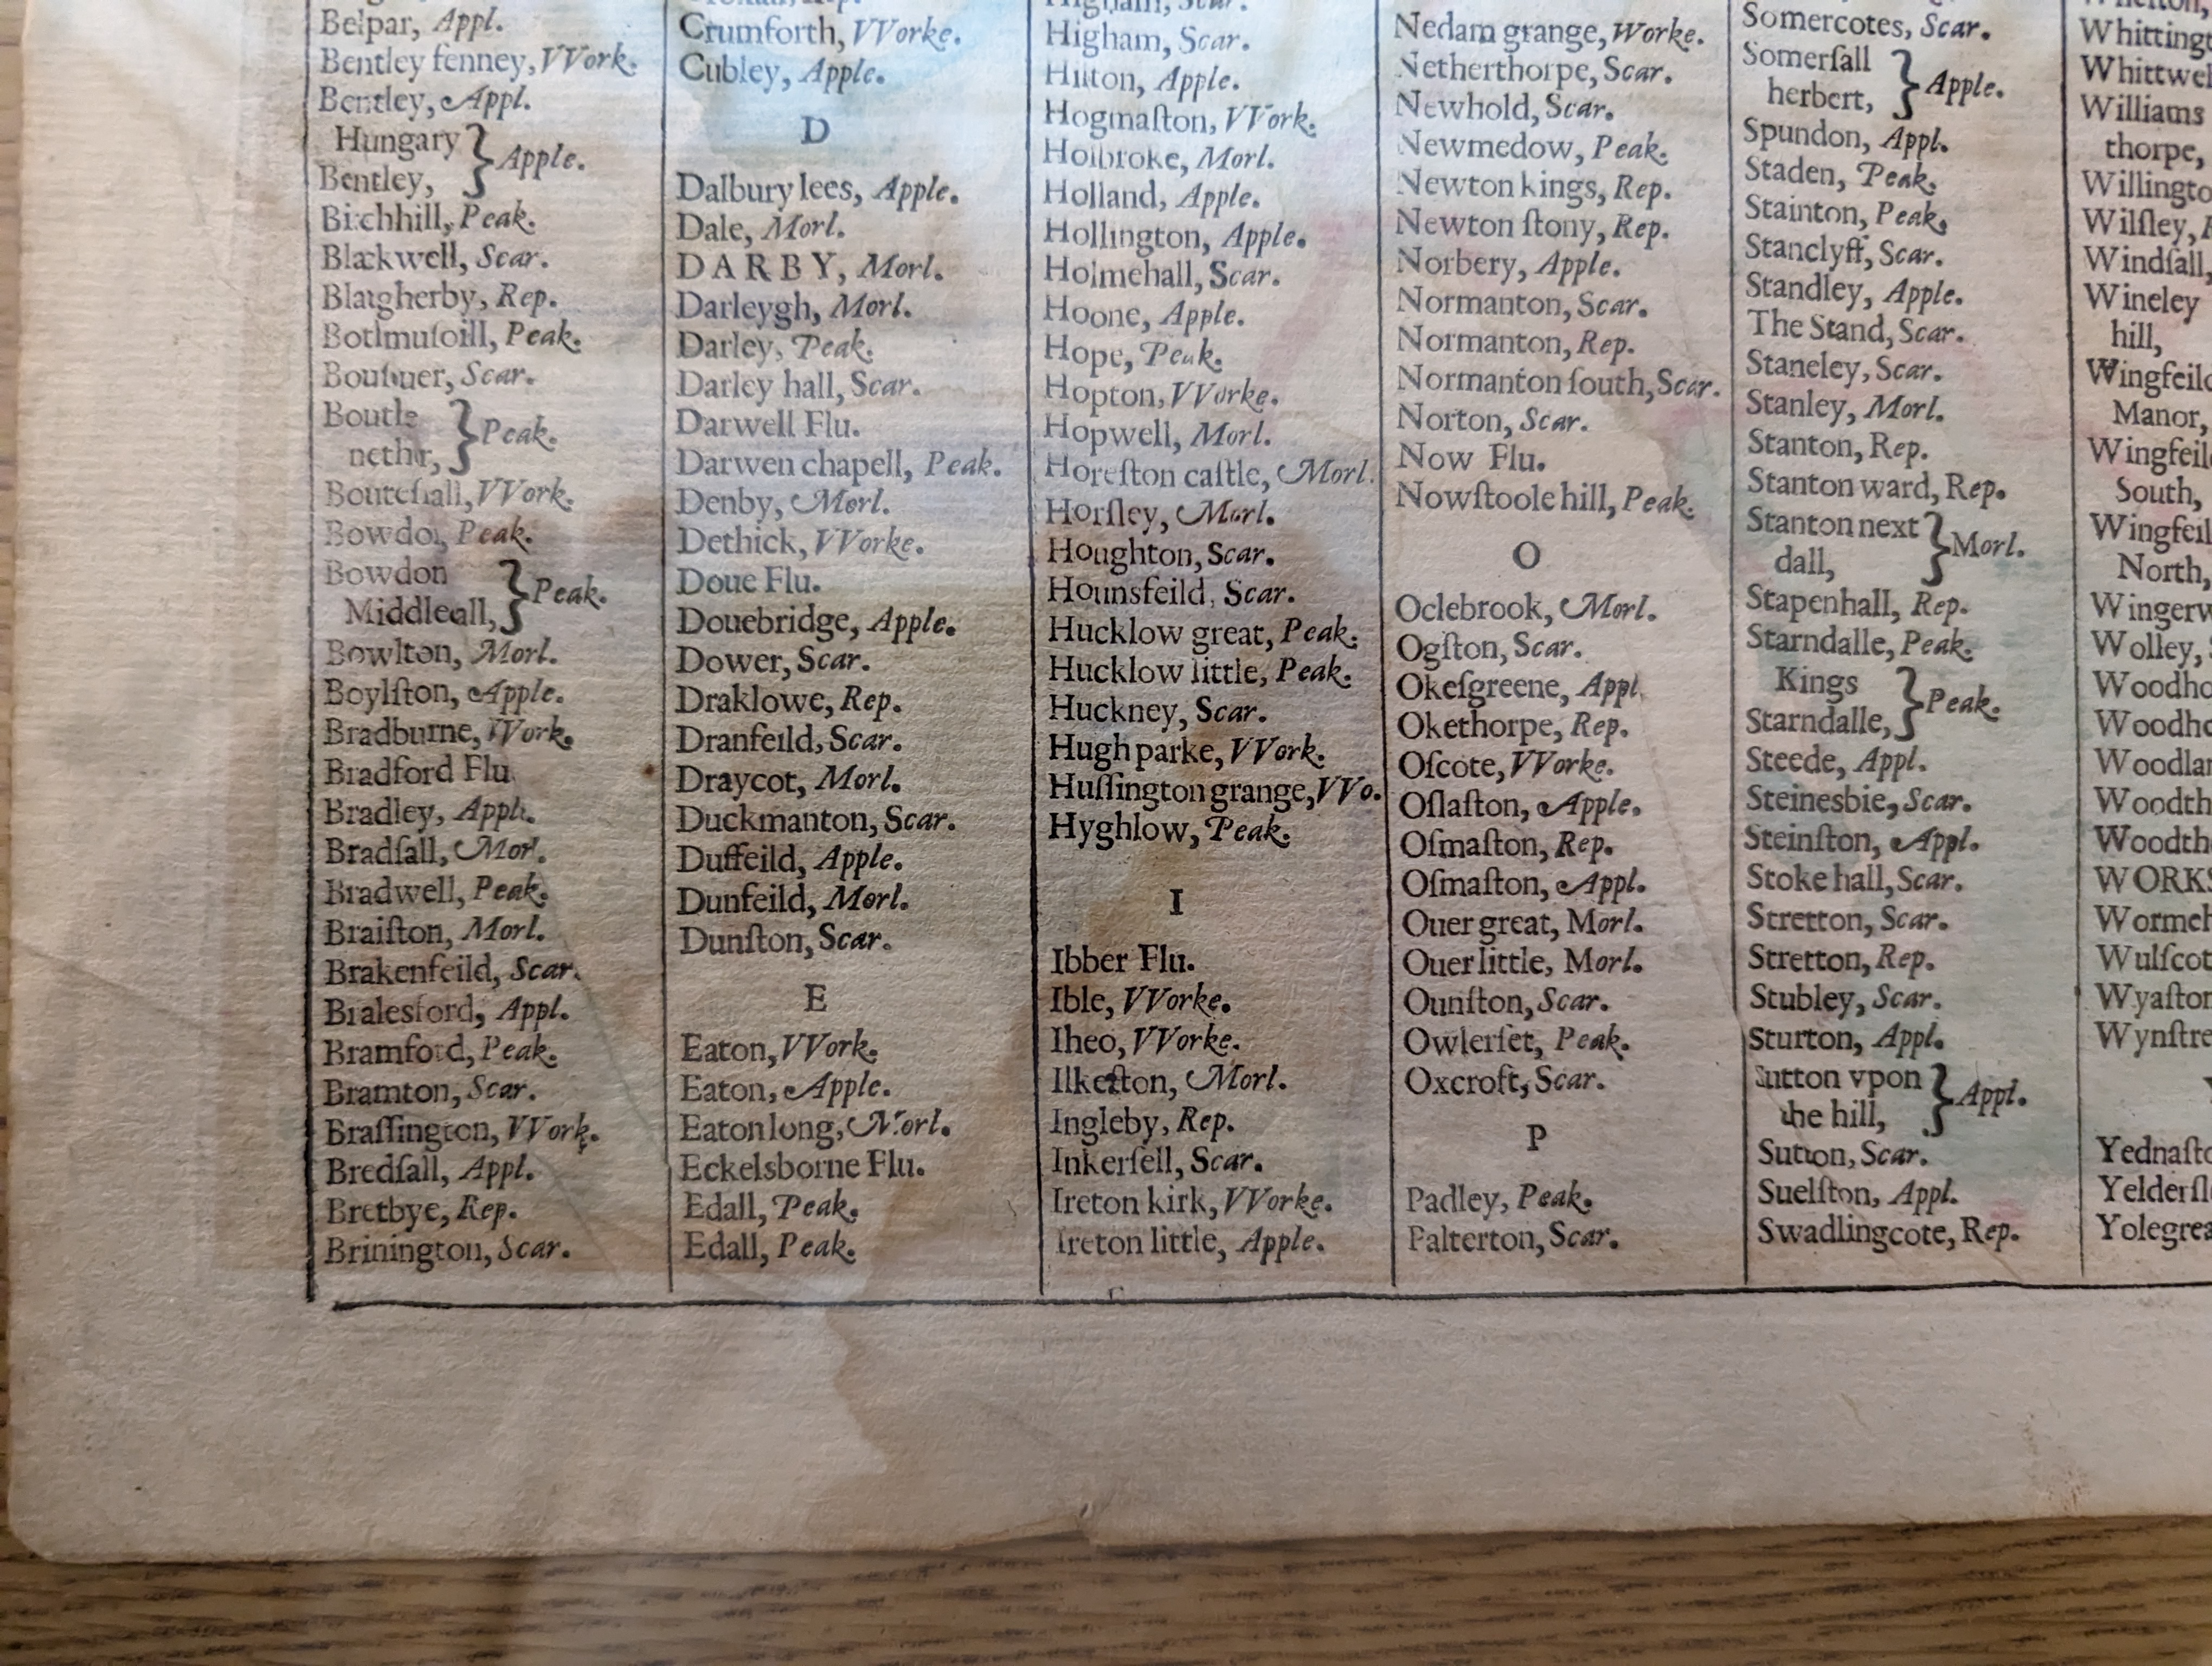 Belpar, Appl.
Bentley fenney, VVork.
Bentley, Appl.
Hungary
Bentley, } Apple.
Birchhill, Peak.
Blackwell, Scar.
Blatgherby, Rep.
Botlmuſoill, Peak.
Scar.
Boutle
nether, } Peak.
VVork.
Peak.
Bowdon
Middlecall, } Peak.
Bowlton, Morl.
Boylſton, Apple.
Bradburne, VVork.
Bradford Flu
Bradley, Appl.
Bradſall, Morl.
Bradwell, Peak.
Braiſton, Morl.
Brakenfeild, Scar.
Bralesford, Appl.
Bramford, Peak.
Bramton, Scar.
Braſſington, VVork.
Bredſall, Appl.
Bretbye, Rep.
Brinington, Scar.
Crumforth, VVorke.
Cubley, Apple.
D
Dalbury lees, Apple.
Dale, Morl.
DARBY, Morl.
Darleygh, Morl.
Darley, Peak.
Darley hall, Scar.
Darwell Flu.
Darwen chapell, Peak.
Denby, Morl.
Dethick, VVorke.
Doue Flu.
Douebridge, Apple.
Dower, Scar.
Draklowe, Rep.
Dranfeild, Scar.
Draycot, Morl.
Duckmanton, Scar.
Duffeild, Apple.
Dunfeild, Morl.
Dunſton, Scar.
E
Eaton, VVork.
Eaton, Apple.
Eaton long, Morl.
Eckelsborne Flu.
Edall, Peak.
Edall, Peak.
Higham, Scar.
Higham, Scar.
Hilton, Apple.
Hogmaſton, VVork.
Holbroke, Morl.
Holland, Apple.
Hollington, Apple.
Holmehall, Scar.
Hoone, Apple.
Hope, Peak.
Hopton, VVorke.
Hopwell, Morl.
Horeſton caſtle, Morl.
Horſley, Morl.
Houghton, Scar.
Hounsfeild, Scar.
Hucklow great, Peak.
Hucklow little, Peak.
Huckney, Scar.
Hugh parke, VVork.
Huſſington grange, VVo.
Hyghlow, Peak.
I
Ibber Flu.
Ible, VVorke.
Iheo, VVorke.
Ilkeſton, Morl.
Ingleby, Rep.
Inkerſell, Scar.
Ireton kirk, VVorke.
Ireton little, Apple.
Nedam grange, Worke.
Netherthorpe, Scar.
Newhold, Scar.
Newmedow, Peak.
Newton kings, Rep.
Newton ſtony, Rep.
Norbery, Apple.
Normanton, Scar.
Normanton, Rep.
Normanton ſouth, Scar.
Norton, Scar.
Now Flu.
Nowſtoole hill, Peak.
O
Oclebrook, Morl.
Ogſton, Scar.
Okeſgreene, Appl.
Okethorpe, Rep.
Oſcote, VVorke.
Oſlaſton, Apple.
Oſmaſton, Rep.
Oſmaſton, Appl.
Ouer great, Morl.
Ouer little, Morl.
Ounſton, Scar.
Owlerſet, Peak.
Oxcroft, Scar.
P
Padley, Peak.
Palterton, Scar.
Somercotes, Scar.
Somerſall
herbert, } Apple.
Spundon, Appl.
Staden, Peak.
Stainton, Peak.
Stanclyff, Scar.
Standley, Apple.
The Stand, Scar.
Staneley, Scar.
Stanley, Morl.
Stanton, Rep.
Stanton ward, Rep.
Stanton next
dall, } Morl.
Stapenhall, Rep.
Starndalle, Peak.
Kings
Starndalle, } Peak.
Steede, Appl.
Steinesbie, Scar.
Steinſton, Appl.
Stoke hall, Scar.
Stretton, Scar.
Stretton, Rep.
Stubley, Scar.
Sturton, Appl.
Sutton vpon
the hill, } Appl.
Sutton, Scar.
Suelſton, Appl.
Swadlingcote, Rep.
Whittingt
Whittwel
Williams
thorpe,
Willingto
Wilſley, A
Windſall,
Wineley
hill,
Wingfeild
Manor,
Wingfeil
South,
Wingfeil
North,
Wingerw
Wolley,
Woodho
Woodho
Woodlan
Woodth
Woodth
WORKS
Wormeh
Wulſcot
Wyaſton
Wynſtre
Yednaſto
Yelderſl
Yolegrea